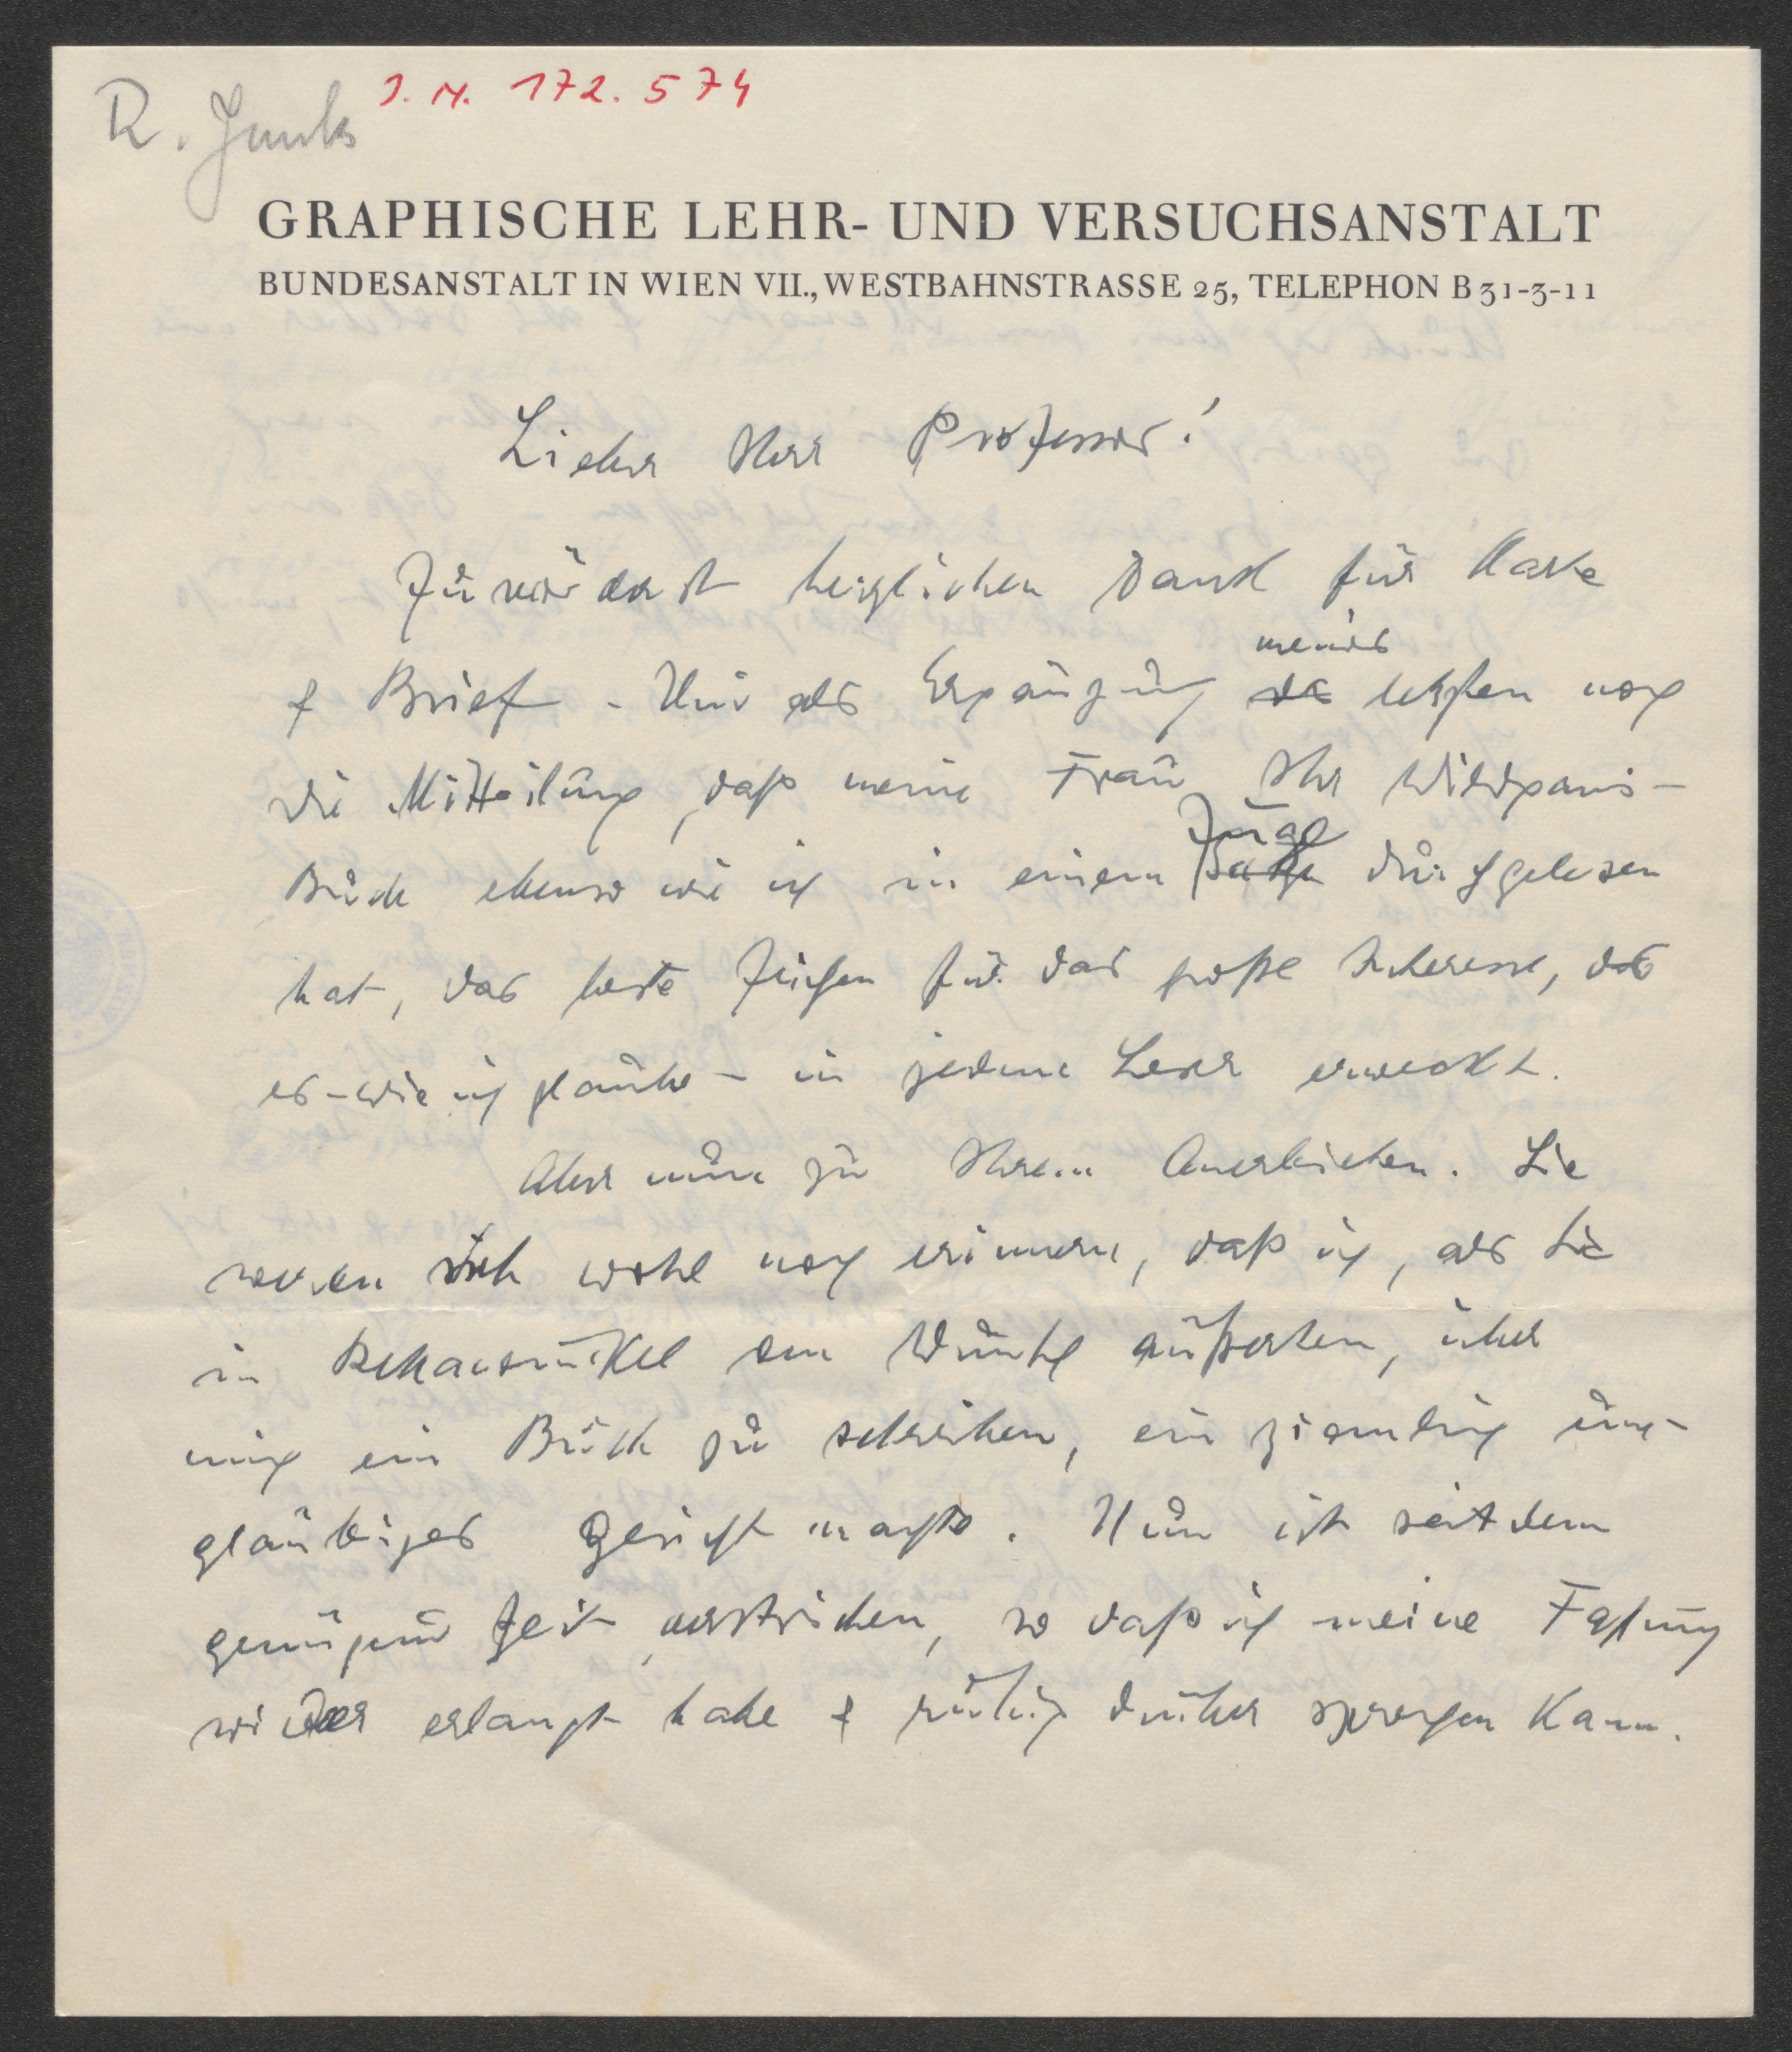 R. Junk
I. N. 172.574
GRAPHISCHE LEHR- UND VERSUCHSANSTALT
BUNDESANSTALT IN WIEN VII., WESTBAHNSTRASSE 25, TELEPHON B 31-3-11
Lieber Herr Professor!
Zuvörderst herzlichen Dank für Karte
& Brief - Nur als Ergänzung meines letzten noch
die Mitteilung, daß meine Frau Ihr Wildgans-
Buch ebenso wie ich in einem Zuge durchgelesen
hat, das beste Zeichen für das große Interesse, das
es - wie ich glaube - in jedem Leser erweckt.
Aber nun zu Ihrem Anerbieten. Sie
werden sich wohl noch erinnern, daß ich, als Sie
in den Wunsch äußerten, über
mich ein Buch zu schreiben, ein ziemlich un-
gläubiges Gesicht machte. Nun ist seitdem
genügend Zeit verstrichen, so daß ich meine Fassung
wieder erlangt habe & ruhig darüber sprechen kann.